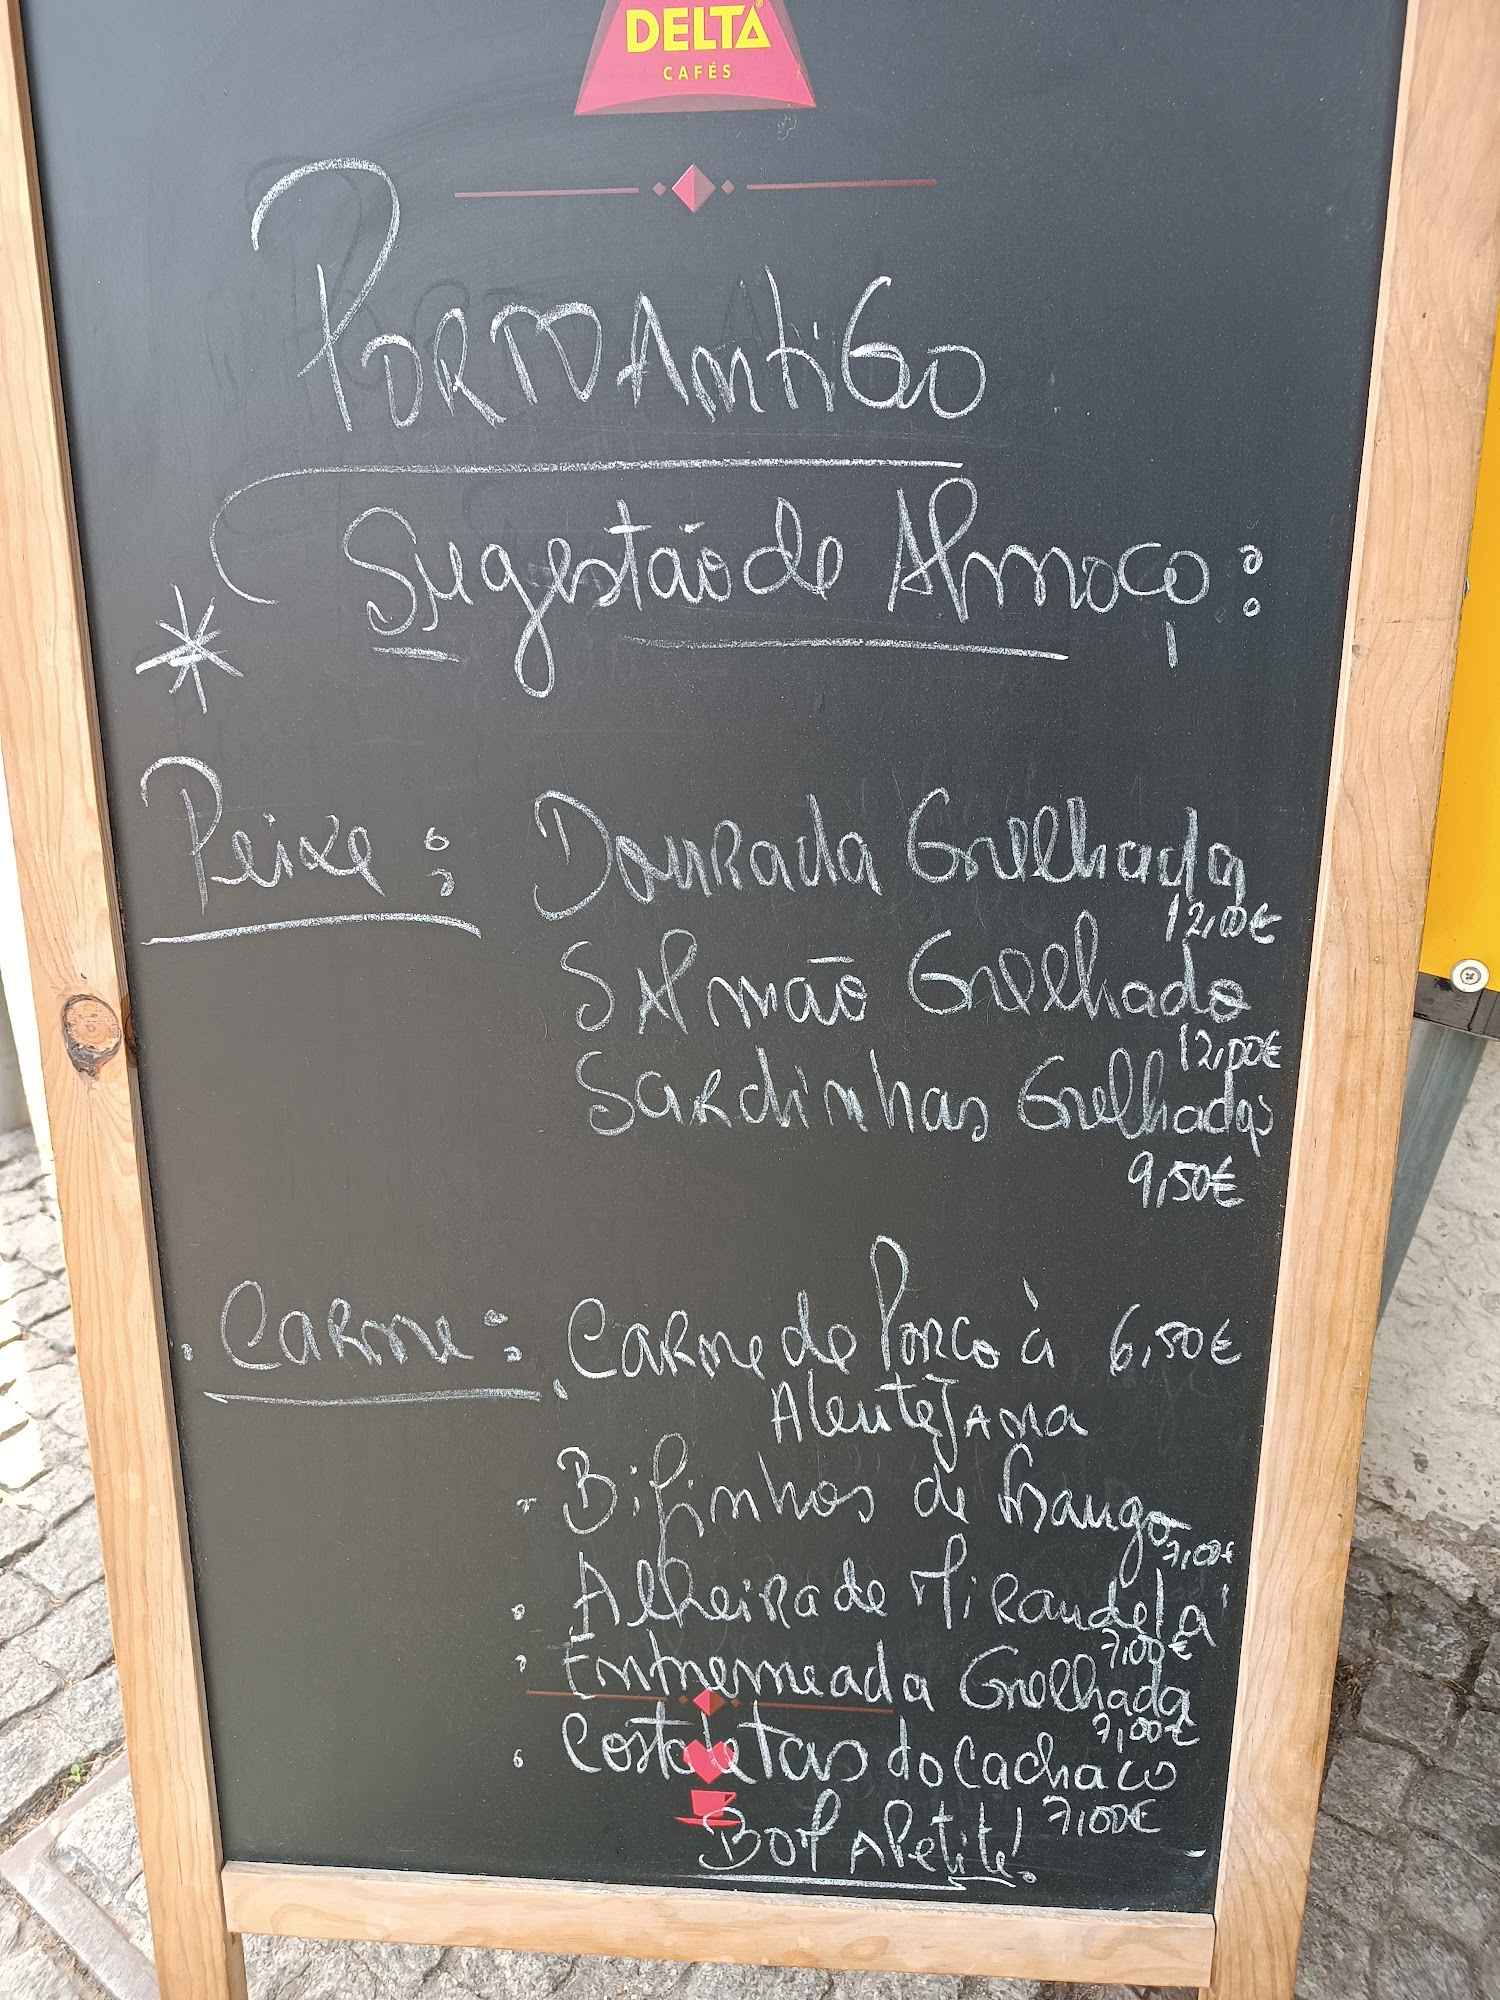 DELTA
CAFÉS
PORTO ANTIGO
Sugestão de Almoço:
Peixe: Dourada Grelhada
12,00€
Salmão Grelhado
12,00€
Sardinhas Grelhadas
9,50€
Carne: Carne de Porco à 6,50€
Alentejana
Bifinhos de Frango
7,00€
Alheira de Mirandela
7,00€
Entremeada Grelhada
7,00€
Costeletas do Cachaco
7,00€
BOM APetite!